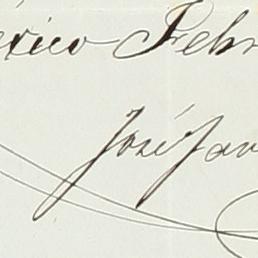 éxico Febr
José Jav